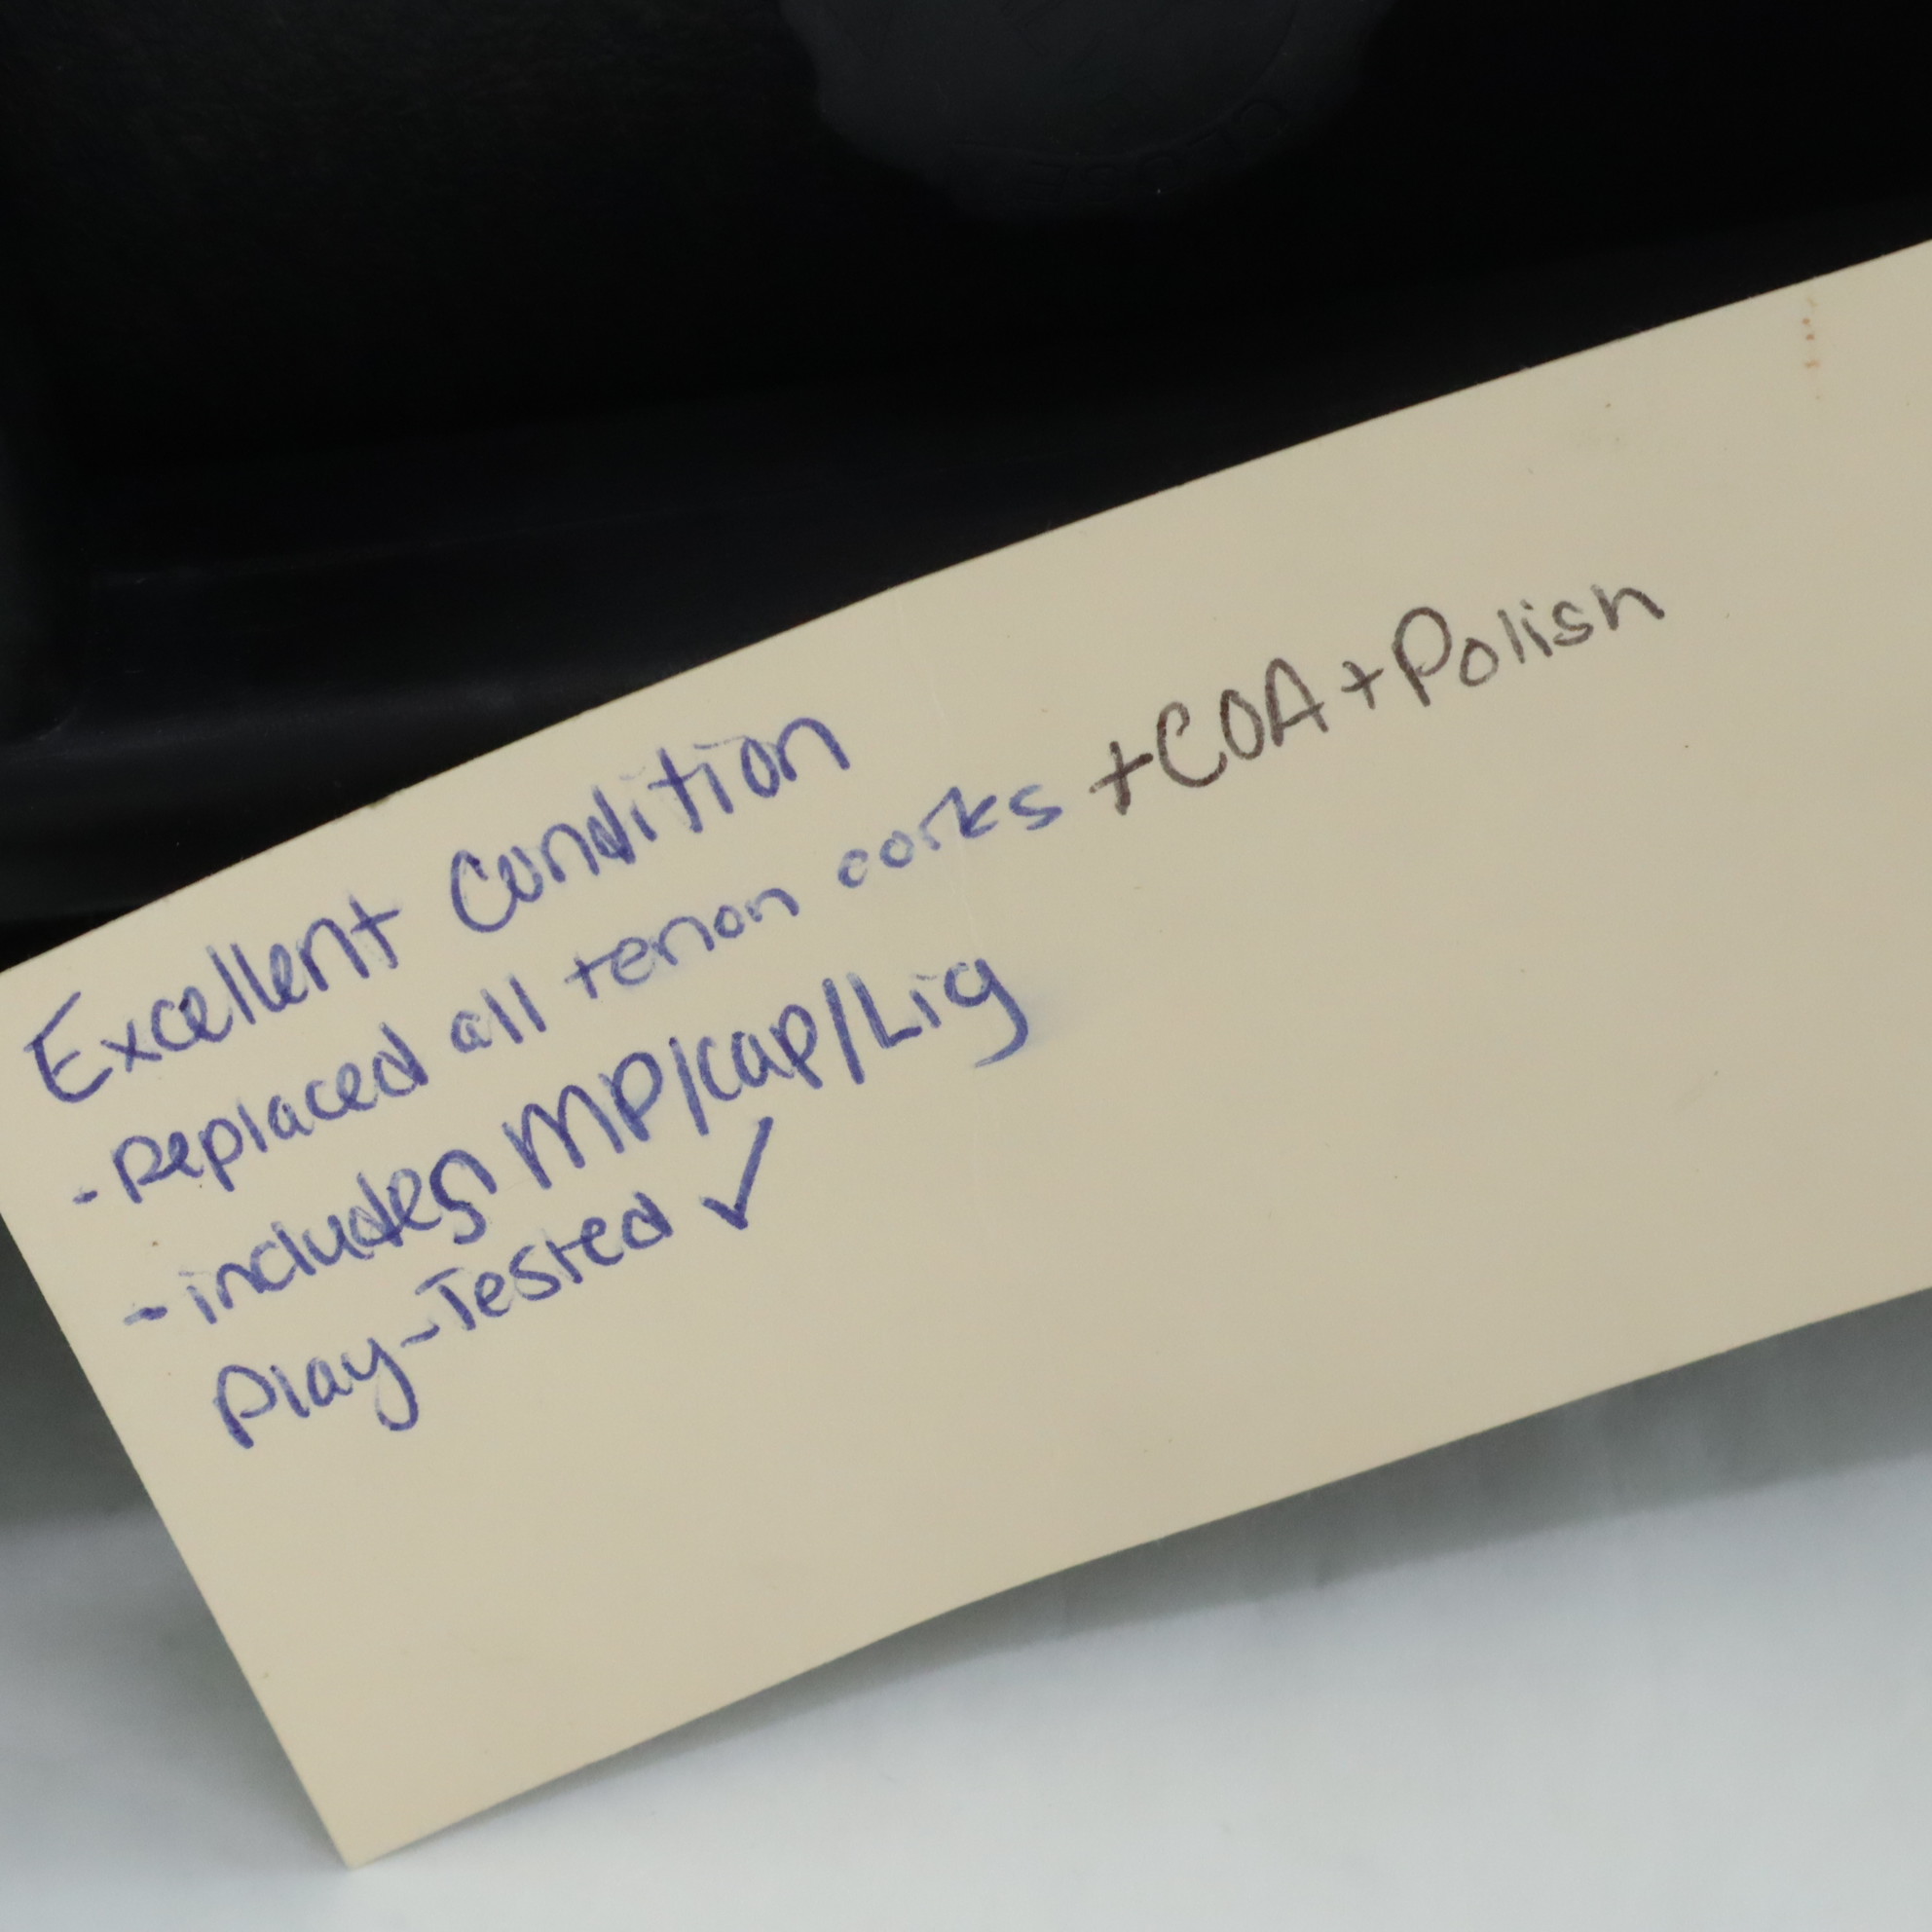 Excellent Condition
- Replaced all tenon corks +COA+Polish
- includes MP/cap/Lig
Play-Tested ✓